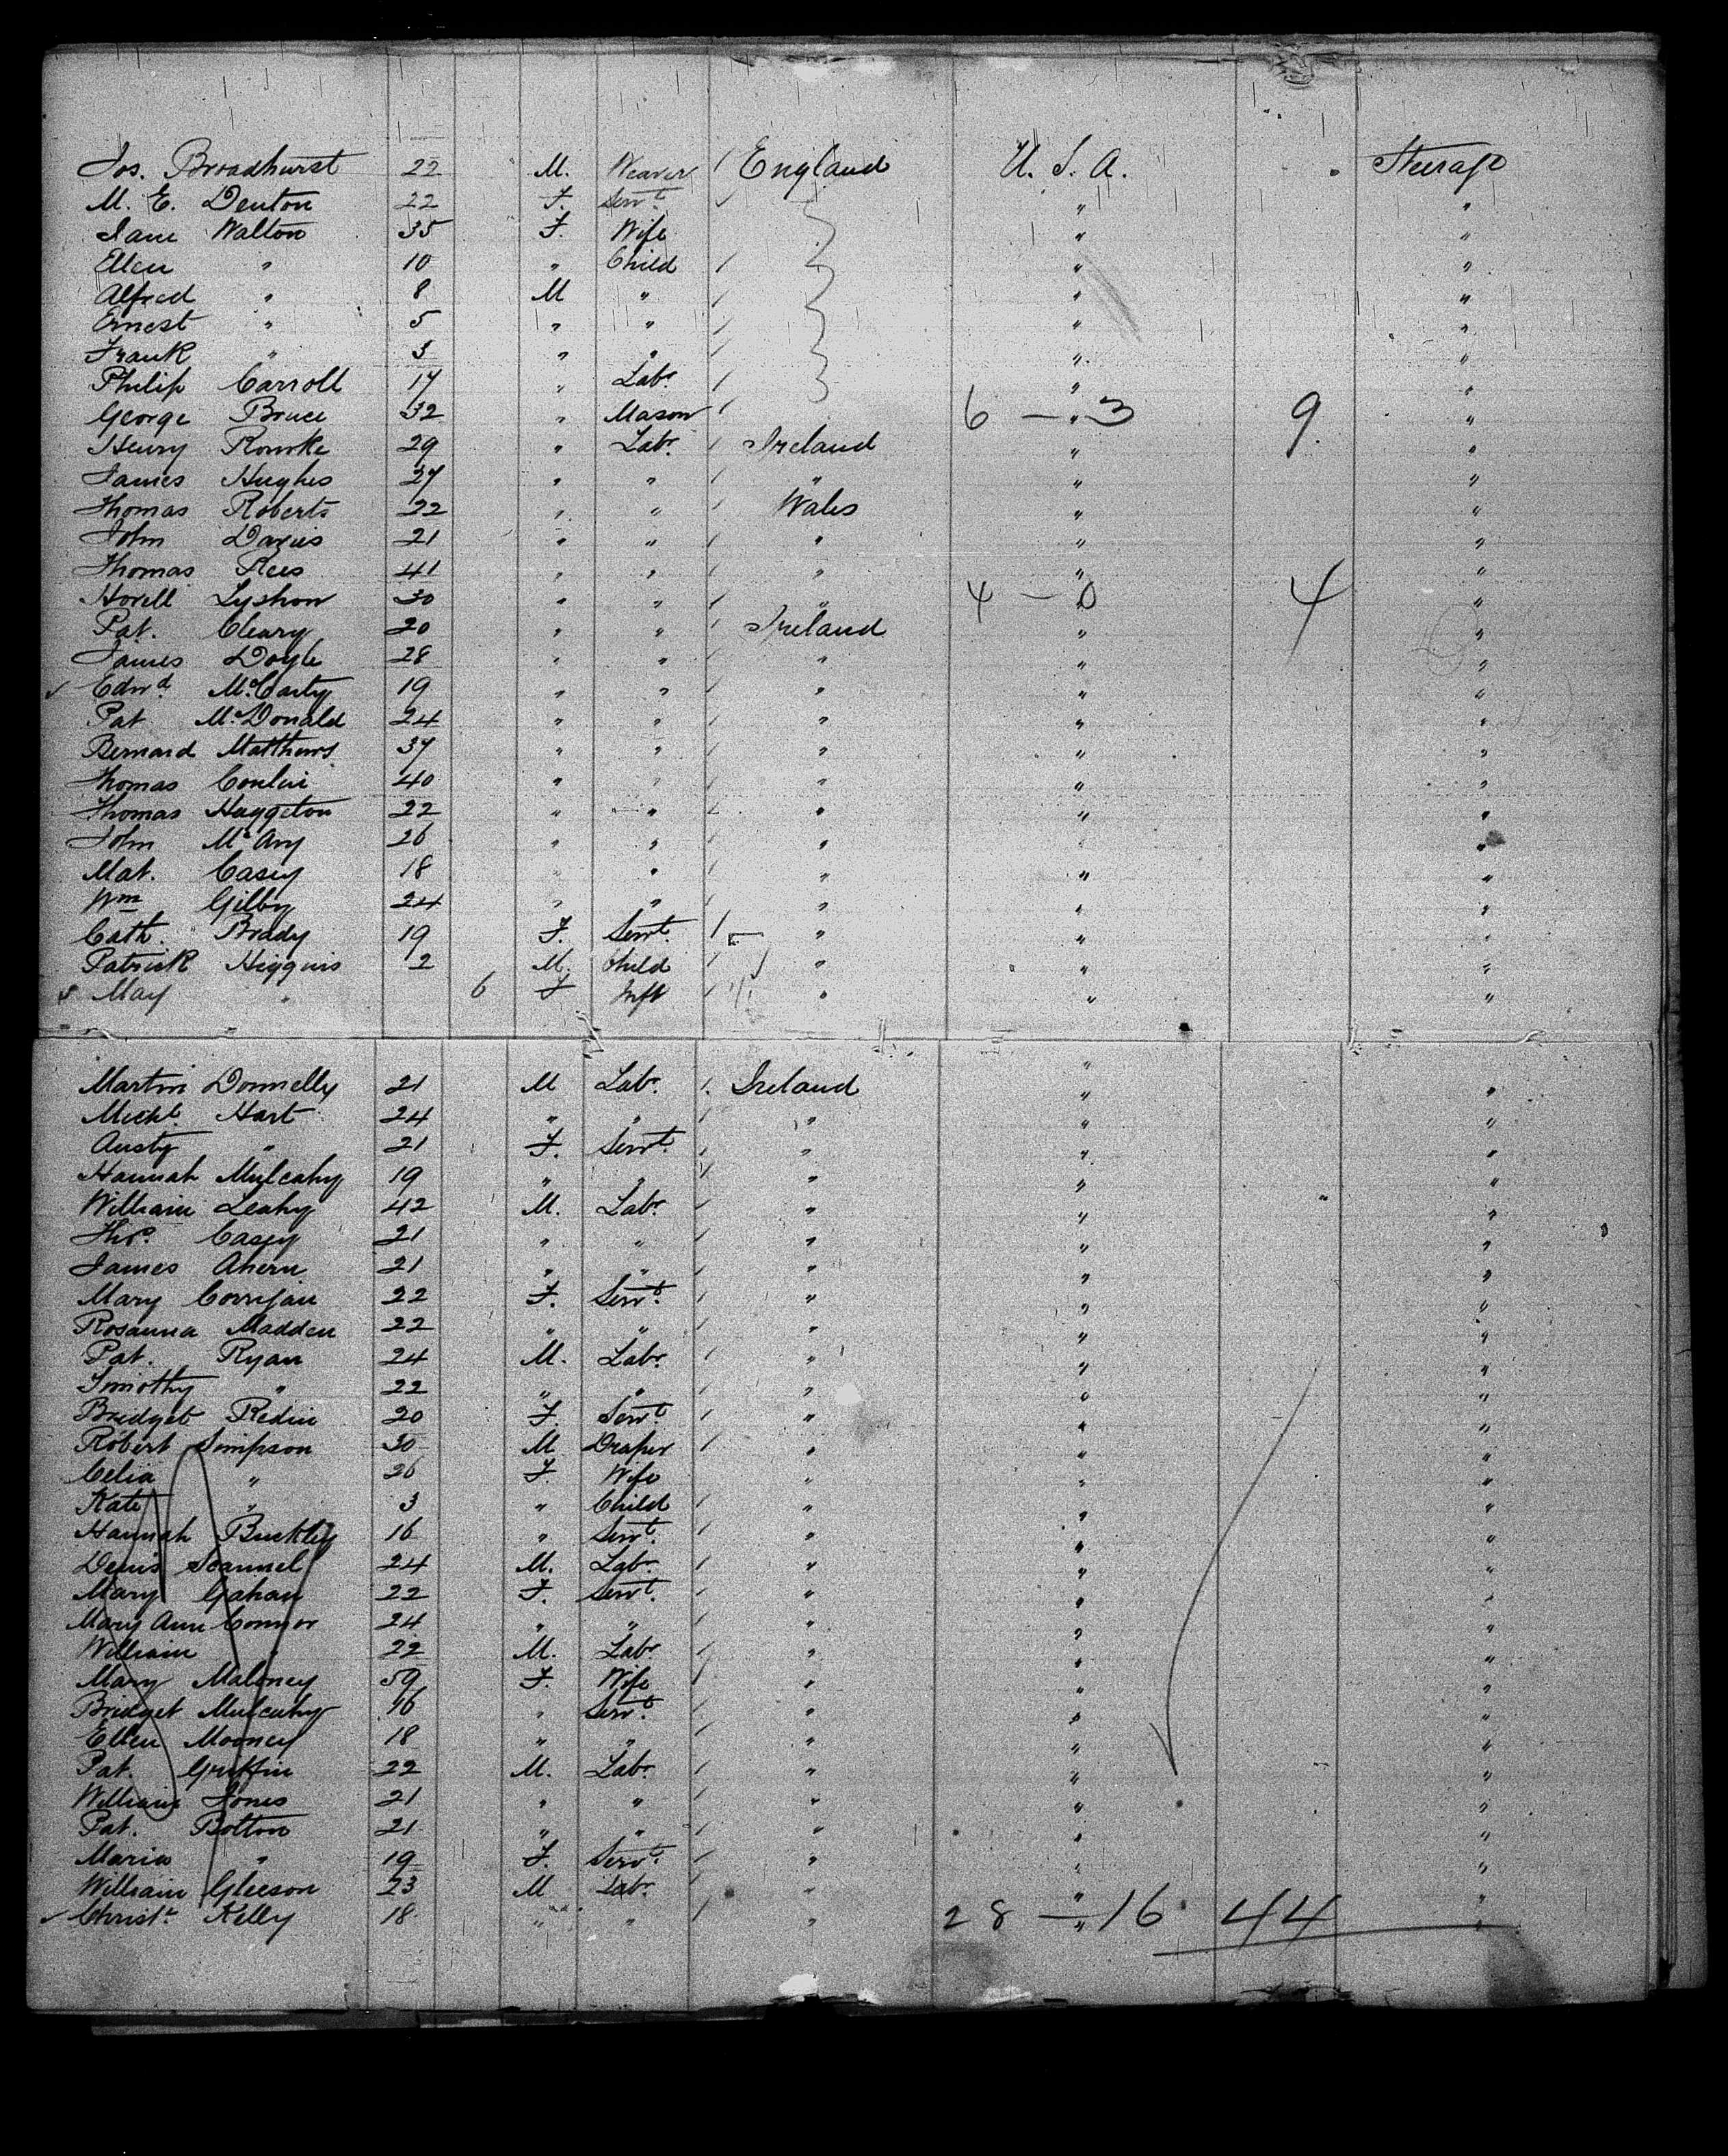 Jos. Broadhurst 22 M. Weaver England U. S. A. Steerage
M. E. Denton 22 F. Servt " "
Jane Walton 35 F. Wife " "
Ellen " 10 " Child " "
Alfred " 8 M " " "
Ernest " 5 " " " "
Frank " 3 " " " "
Philip Carroll 17 " Labr " "
George Bruce 32 " Mason 6 — " 3 9 "
Henry Rourke 29 " Labr. Ireland " "
James Hughes 27 " " " " "
Thomas Roberts 22 " " Wales " "
John Davies 21 " " " " "
Thomas Rees 41 " " " " "
Howell Lyshon 30 " " " 4 — 0 4 "
Pat. Cleary 20 " " Ireland " "
James Doyle 28 " " " " "
Edwd. McCarty 19 " " " " "
Pat McDonald 24 " " " " "
Bernard Matthews 37 " " " " "
Thomas Conlin 40 " " " " "
Thomas Huggeton 22 " " " " "
John McAvy 26 " " " "
Mat. Casey 18 " " " " "
Wm Gilby 24 " " " " "
Cath. Brady 19 F. Servt. " " "
Patrick Higgins 2 M. Child " " "
May " 6 F Inft " " "
Martin Donnelly 21 M Labr. Ireland " "
Michl. Hart 24 " " " " "
Austy " 21 F. Servt. " " "
Hannah Mulcahy 19 " " " " "
William Leahy 42 M. Labr. " " "
Thos. Casey 21 " " " " "
James Ahern 21 " " " " "
Mary Corrigan 22 F. Servt. " " "
Rosanna Madden 22 " " " " "
Pat. Ryan 24 M. Labr. " " "
Timothy " 22 " " " " "
Bridget Redin 20 F. Servt " " "
Robert Simpson 30 M Draper " " "
Celia " 26 F. Wife " " "
Kate " 3 " Child " " "
Hannah Buckley 16 " Servt. " " "
Denis Scannel 24 M. Labr. " " "
Mary Gahan 22 F. Servt. " " "
Mary Ann Connor 24 " " " " "
William " 22 M. Labr " " "
Mary Maloney 59 F. Wife " " "
Bridget Mulcahy 16 " Servt. " " "
Ellen Mooney 18 " " " " "
Pat. Griffin 22 M. Labr. " " "
William Jones 21 " " " " "
Pat. Bolton 21 " " " " "
Maria " 19 F. Servt. " " "
William Gleeson 23 M Labr. " " "
Christr. Kelly 18 " " " 28 — " 16 44 "